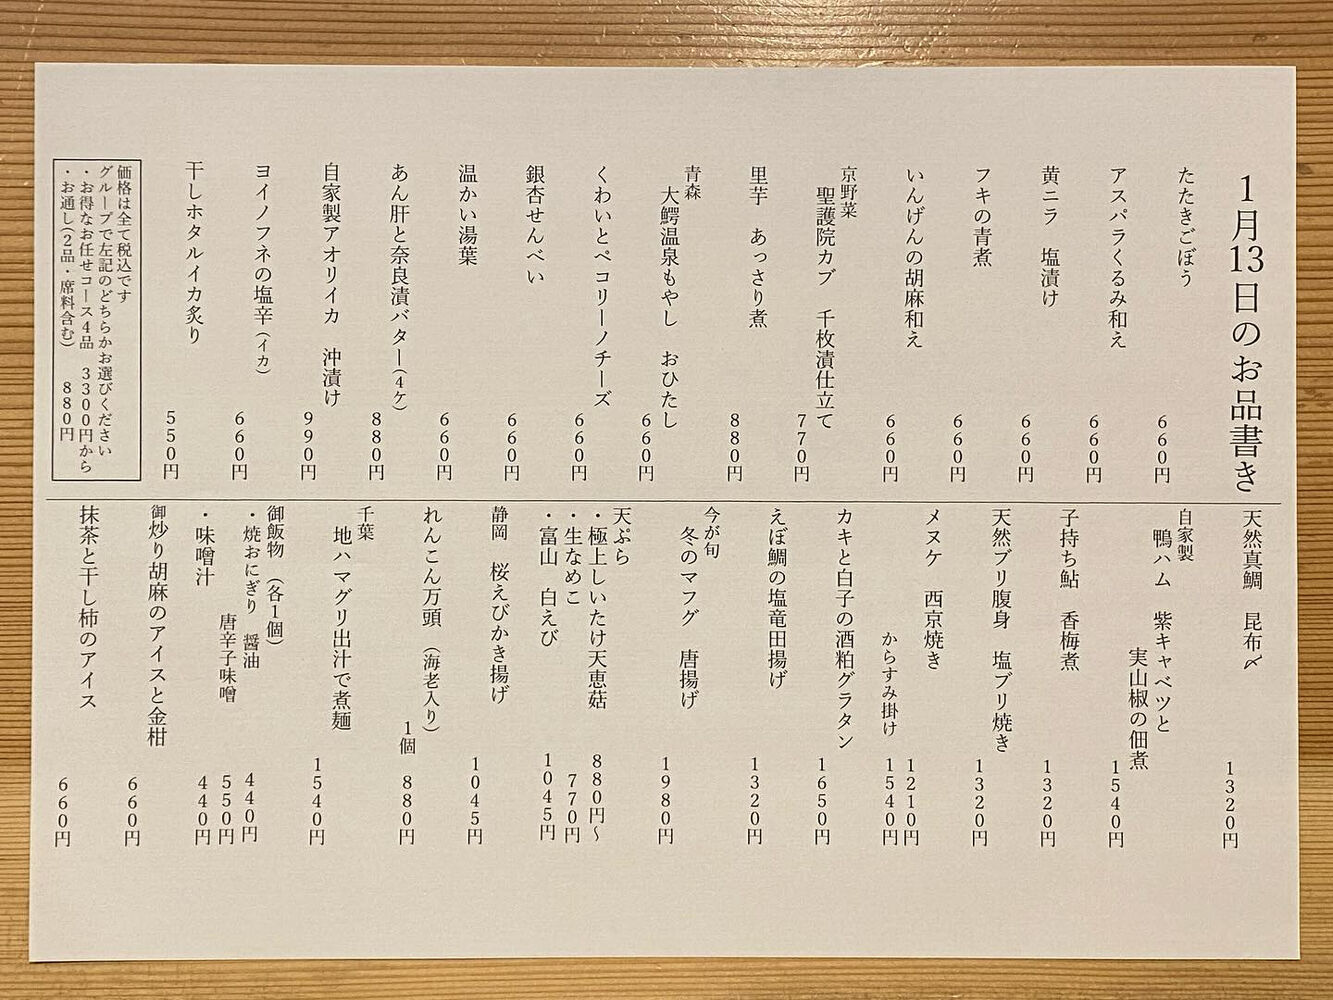 1月13日のお品書き
たたきごぼう
660円
アスパラくるみ和え
660円
黄ニラ 塩漬け
660円
フキの青煮
660円
いんげんの胡麻和え
660円
京野菜
聖護院カブ 千枚漬仕立て
770円
里芋 あっさり煮
880円
青森
大鰐温泉もやし おひたし
660円
くわいとペコリーノチーズ
660円
銀杏せんべい
660円
温かい湯葉
660円
あん肝と奈良漬バター(4ケ)
880円
自家製アオリイカ 沖漬け
990円
ヨイノフネの塩辛(イカ)
660円
干しホタルイカ炙り
550円
価格は全て税込です
グループで左記のどちらかお選びください
・お得なお任せコース4品 3300円から
・お通し(2品・席料含む) 880円
天然真鯛 昆布〆
1320円
自家製
鴨ハム 紫キャベツと
実山椒の佃煮
1540円
子持ち鮎 香梅煮
1320円
天然ブリ腹身 塩ブリ焼き
1320円
メヌケ 西京焼き
1210円
からすみ掛け
1540円
カキと白子の酒粕グラタン
1650円
えぼ鯛の塩竜田揚げ
1320円
今が旬
冬のマフグ 唐揚げ
1980円
天ぷら
・極上しいたけ天恵菇
880円〜
・生なめこ
770円
・富山 白えび
1045円
静岡 桜えびかき揚げ
1045円
れんこん万頭 (海老入り)
1個 880円
千葉
地ハマグリ出汁で煮麺
1540円
御飯物 (各1個)
・焼おにぎり 醤油
440円
唐辛子味噌
550円
・味噌汁
440円
御炒り胡麻のアイスと金柑
660円
抹茶と干し柿のアイス
660円